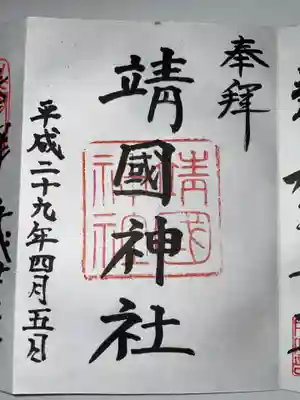 奉拝
靖國神社
平成二十九年四月五日
靖国
神社